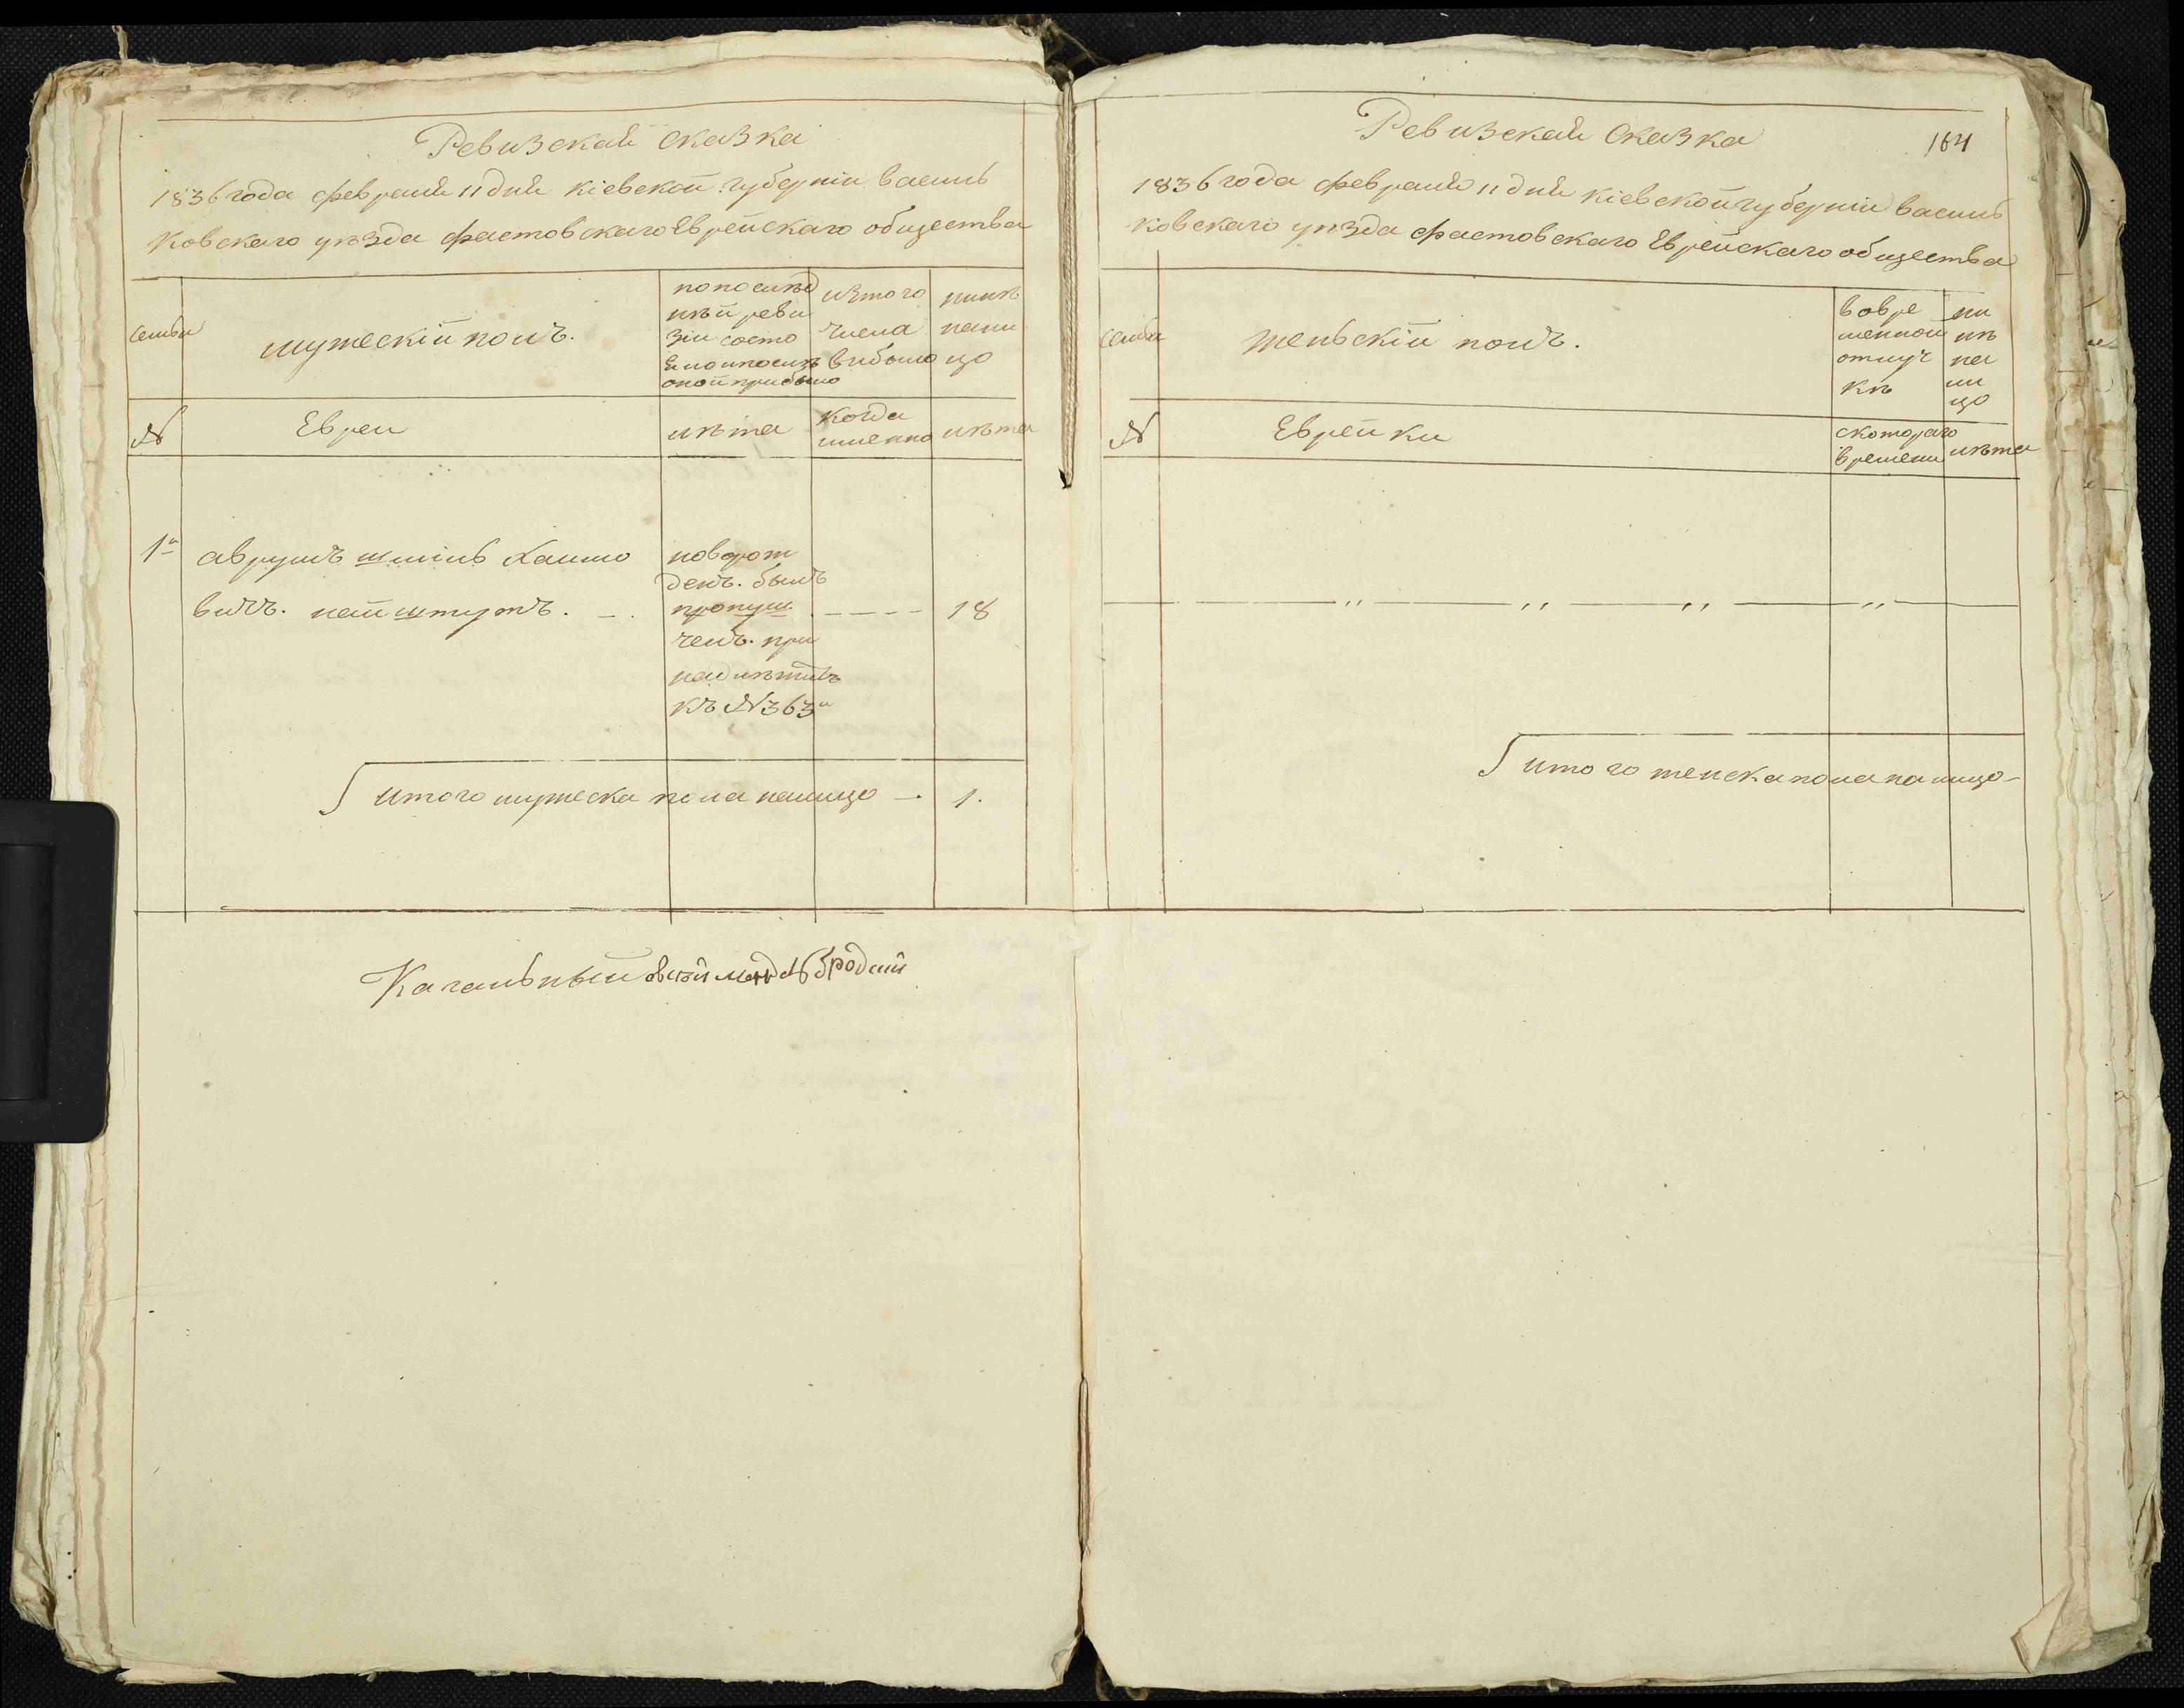 Ревизская сказка
1836 года февраля 11 дня Кіевской губерніи василь
ковскаго уѣзда фастовскаго Еврейскаго общества
семьи
мужескій полъ.
по послѣд
нѣй реви
зіи состо
яло и послѣ
оной прибыло
изтого
числа
выбыло
нынѣ
нали
цо
№
Евреи
лѣта
когда
именно
лѣта
1й
аврумъ шміль Хаимо
вичъ. найштутъ.
новорож
денъ. былъ
пропущ
ченъ. при
надлѣжитъ
къ №363й
18
Итого мужеска пола налицо — 1.
Кагальный бродскій
Ревизская Сказка
164
1836 года февраля 11 дня Кіевской губерніи василь
ковскаго уѣзда фастовскаго Еврейскаго общества
семьи
женьскій полъ.
вовре
менной
отлуч
кѣ
ны
нѣ
на
ли
цо
№
Еврейки
скотораго
времени
лѣта
Итого женска пола налицо